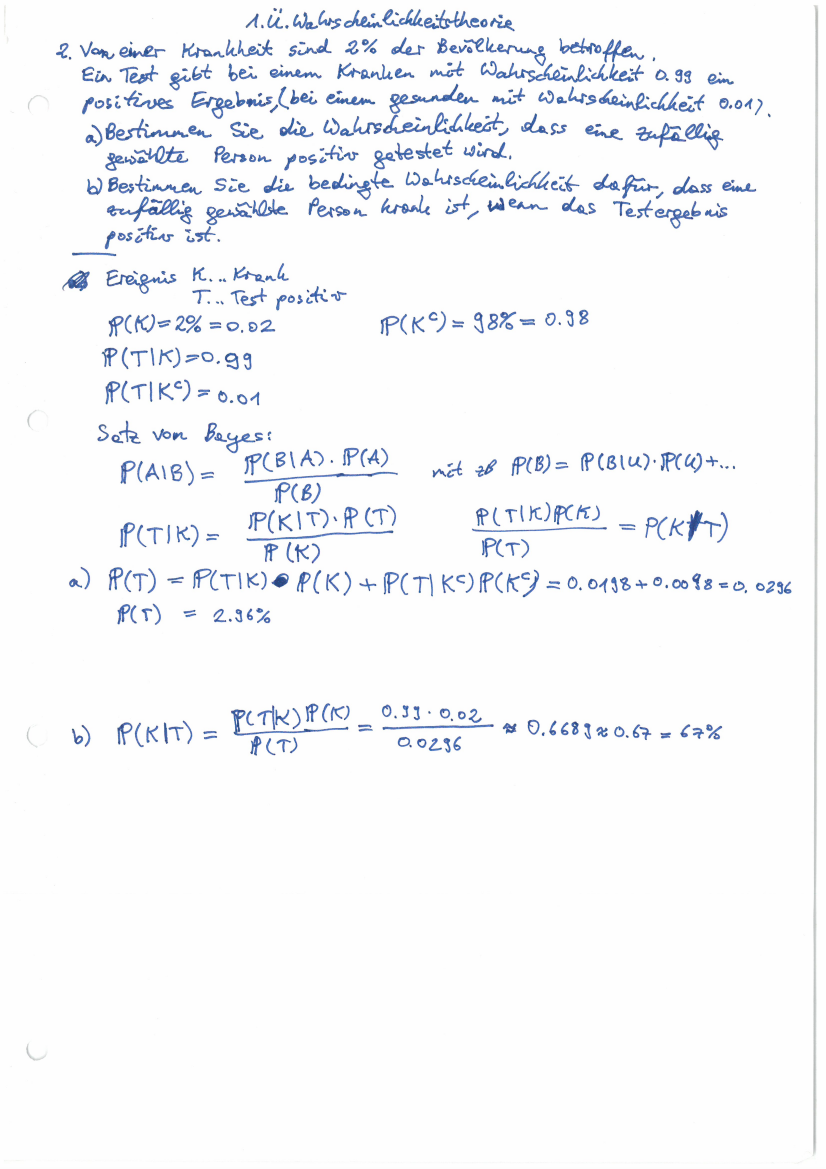 1.Ü. Wahrscheinlichkeitstheorie
2. Von einer Krankheit sind 2% der Bevölkerung betroffen.
Ein Test gibt bei einem Kranken mit Wahrscheinlichkeit 0.99 ein
positives Ergebnis, (bei einem gesunden mit Wahrscheinlichkeit 0.01).
a) Bestimmen Sie die Wahrscheinlichkeit, dass eine zufällig
gewählte Person positiv getestet wird.
b) Bestimmen Sie die bedingte Wahrscheinlichkeit dafür, dass eine
zufällig gewählte Person krank ist, wenn das Testergebnis
positiv ist.
Ereignis K... Krank
T... Test positiv
ℙ(K)=2%=0.02 ℙ(Kᶜ)=98%=0.98
ℙ(T|K)=0.99
ℙ(T|Kᶜ)=0.01
Satz von Bayes:
ℙ(A|B) = ℙ(B|A)·ℙ(A) / ℙ(B) mit zb ℙ(B)= ℙ(B|U)·ℙ(U)+...
ℙ(T|K) = ℙ(K|T)·ℙ(T) / ℙ(K) ℙ(T|K)ℙ(K) / ℙ(T) = ℙ(K|T)
a) ℙ(T) = ℙ(T|K)·ℙ(K) + ℙ(T|Kᶜ)ℙ(Kᶜ) = 0.0198+0.0098=0.0296
ℙ(T) = 2.96%
b) ℙ(K|T) = ℙ(T|K)ℙ(K) / ℙ(T) = 0.99·0.02 / 0.0296 ≈ 0.6689≈0.67=67%